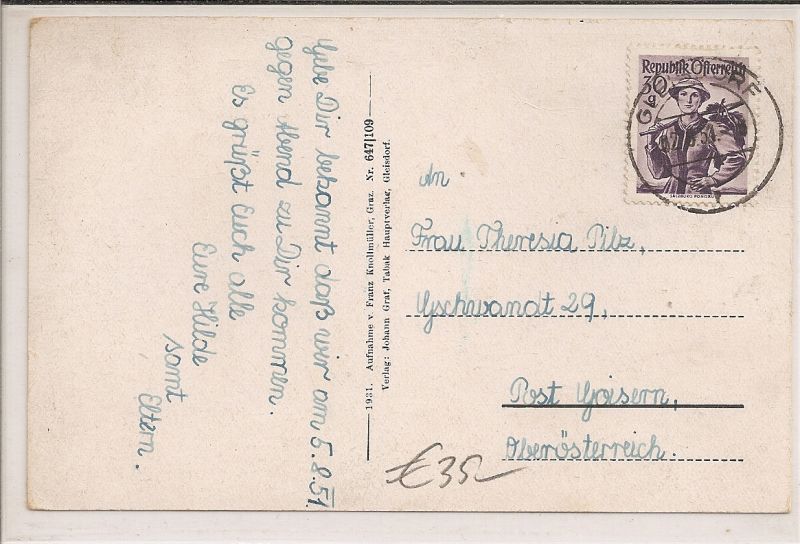 Gebe Dir bekannt daß wir am 5.8.51
gegen Abend zu Dir kommen.
Es grüßt Euch alle
Eure Hilde
samt
Eltern.
1931. Aufnahme v. Franz Knollmüller, Graz. Nr. 647|109
Verlag: Johann Graf, Tabak Hauptverlag, Gleisdorf.
Republik Österreich
30
An
Frau Theresia Pilz,
Gschwandt 29,
Post Goisern,
Oberösterreich.
€35